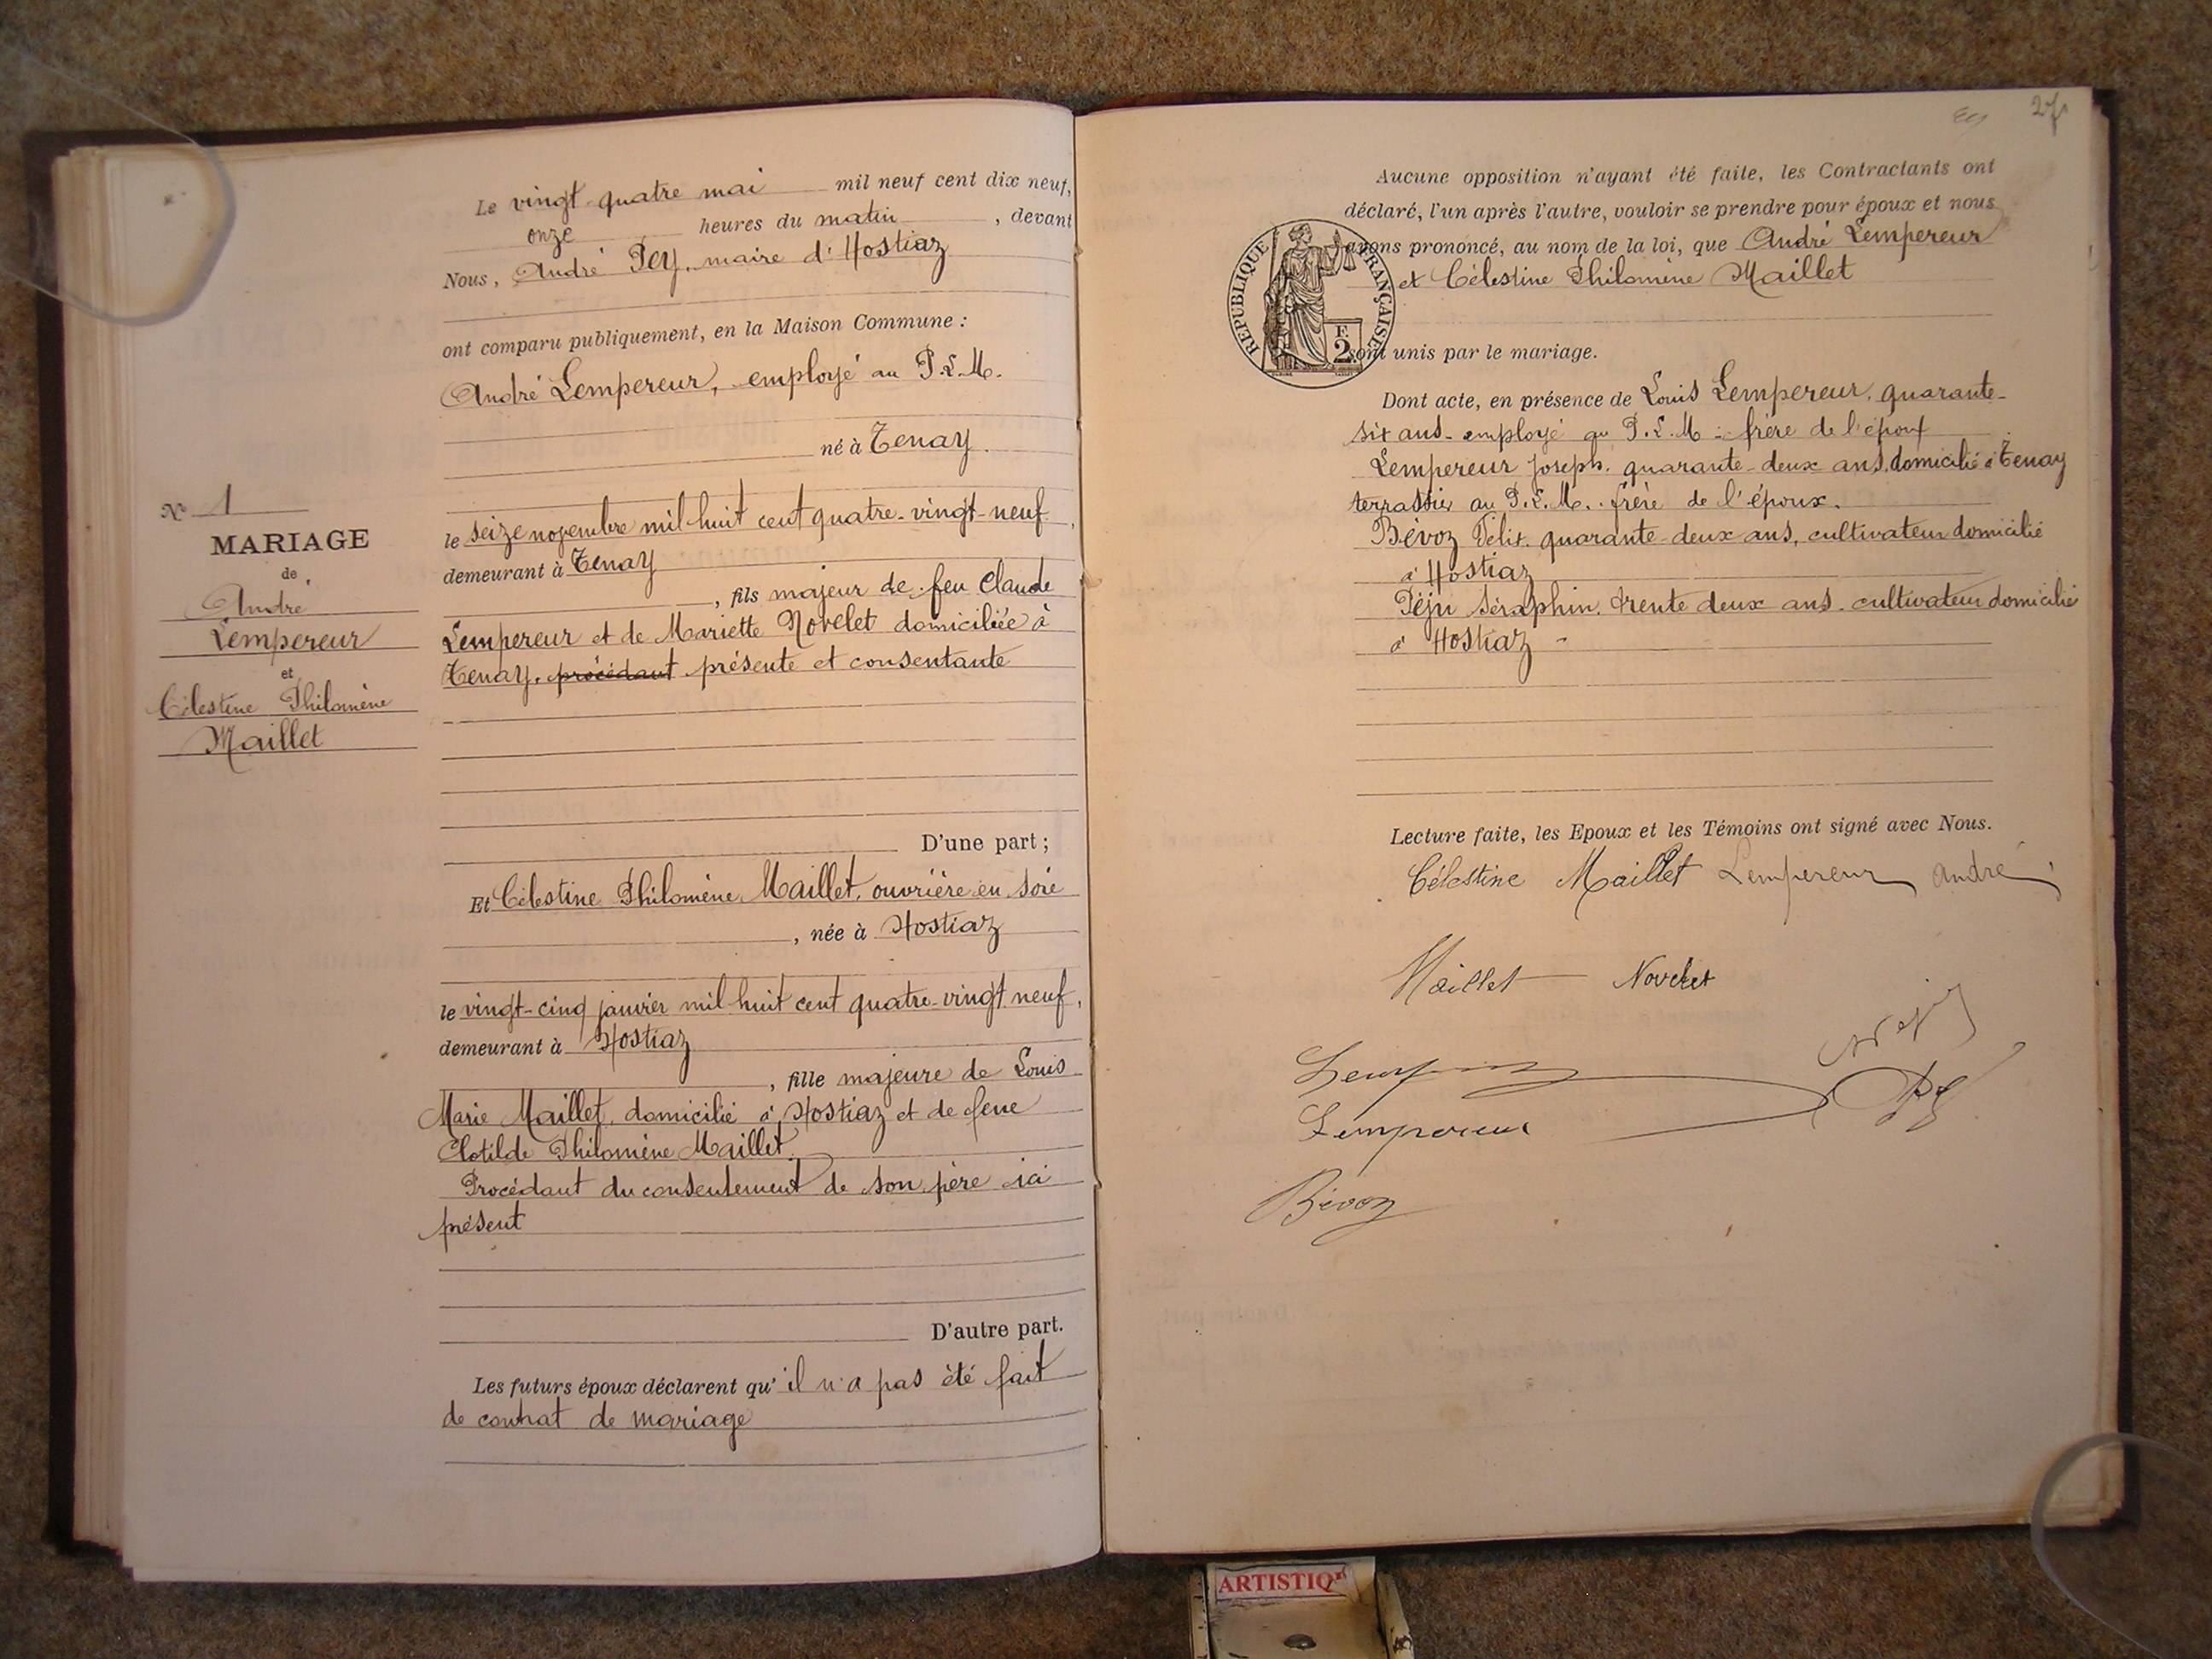 N° 1
MARIAGE
de
André
Lempereur
et
Célestine Philomène
Maillet
Le vingt-quatre mai mil neuf cent dix neuf,
onze heures du matin, devant
Nous, André Pey, maire d'Hostiaz
ont comparu publiquement, en la Maison Commune :
André Lempereur, employé au P.L.M.
né à Tenay
le seize novembre mil huit cent quatre-vingt-neuf,
demeurant à Tenay
, fils majeur de feu Claude
Lempereur et de Mariette Novelet domiciliée à
Tenay, procédant présente et consentante
D'une part ;
Et Célestine Philomène Maillet, ouvrière en soie
, née à Hostiaz
le vingt-cinq janvier mil huit cent quatre-vingt neuf,
demeurant à Hostiaz
, fille majeure de Louis
Marie Maillet, domicilié à Hostiaz et de feue
Clotilde Philomène Maillet.
Procédant du consentement de son père ici
présent
D'autre part.
Les futurs époux déclarent qu'il n'a pas été fait
de contrat de mariage
27
Aucune opposition n'ayant été faite, les Contractants ont
déclaré, l'un après l'autre, vouloir se prendre pour époux et nous
avons prononcé, au nom de la loi, que André Lempereur
et Célestine Philomène Maillet
RÉPUBLIQUE FRANÇAISE
F.
2
sont unis par le mariage.
Dont acte, en présence de Louis Lempereur, quarante-
six ans - employé au P.L.M - frère de l'époux
Lempereur Joseph. quarante-deux ans, domicilié à Tenay
terrassier au P.L.M. frère de l'époux.
Bévoz Félix. quarante-deux ans, cultivateur domicilié
à Hostiaz
Péju Séraphin. trente deux ans. cultivateur domicilié
à Hostiaz -
Lecture faite, les Epoux et les Témoins ont signé avec Nous.
Célestine Maillet Lempereur André
Maillet Noveket
Lempereur
Bévoz
ARTISTIQ